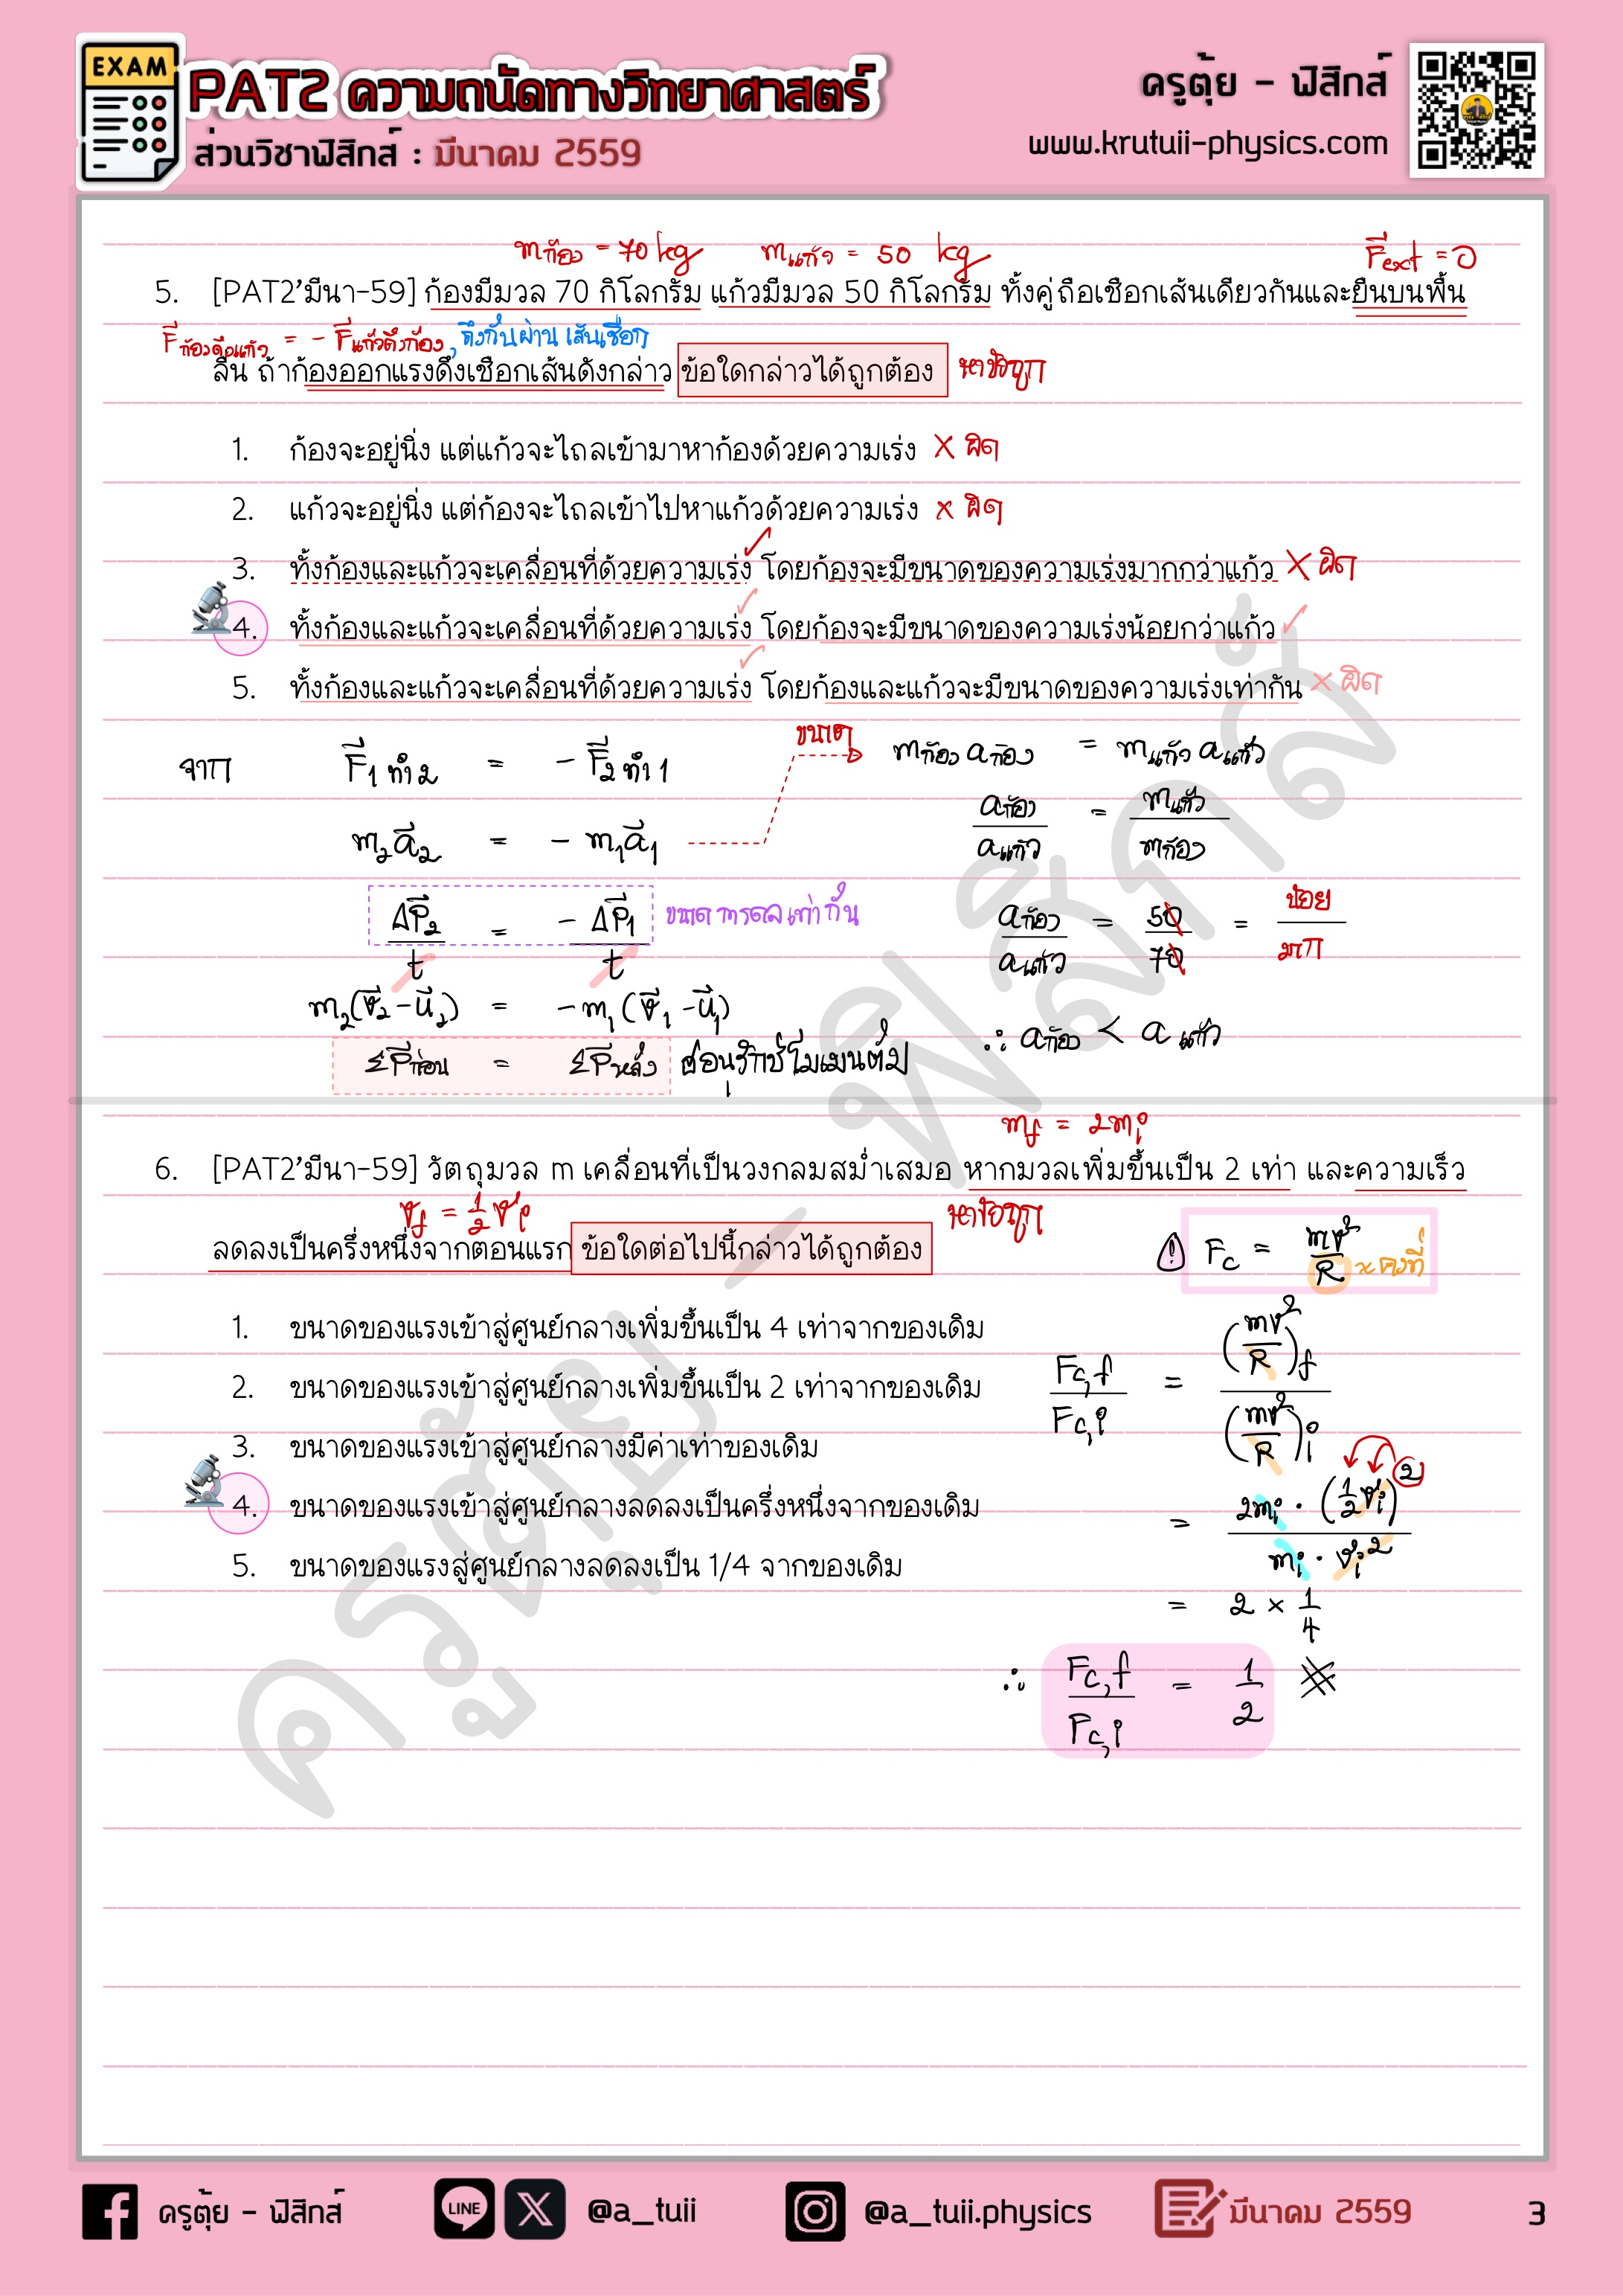 EXAM
PAT2 ความถนัดทางวิทยาศาสตร์
ส่วนวิชาฟิสิกส์ : มีนาคม 2559
ครูตุ้ย - ฟิสิกส์
www.krutuii-physics.com
m ก้อง = 70 kg m แก้ว = 50 kg F ext = 0
5. [PAT2'มีนา-59] ก้องมีมวล 70 กิโลกรัม แก้วมีมวล 50 กิโลกรัม ทั้งคู่ถือเชือกเส้นเดียวกันและยืนบนพื้น
F ก้องดึงแก้ว = - F แก้วดึงก้อง , ดึงกันผ่านเส้นเชือก
ลื่น ถ้าก้องออกแรงดึงเชือกเส้นดังกล่าว ข้อใดกล่าวได้ถูกต้อง หาข้อถูก
1. ก้องจะอยู่นิ่ง แต่แก้วจะไถลเข้ามาหาก้องด้วยความเร่ง X ผิด
2. แก้วจะอยู่นิ่ง แต่ก้องจะไถลเข้าไปหาแก้วด้วยความเร่ง X ผิด
3. ทั้งก้องและแก้วจะเคลื่อนที่ด้วยความเร่ง โดยก้องจะมีขนาดของความเร่งมากกว่าแก้ว X ผิด
4. ทั้งก้องและแก้วจะเคลื่อนที่ด้วยความเร่ง โดยก้องจะมีขนาดของความเร่งน้อยกว่าแก้ว
5. ทั้งก้องและแก้วจะเคลื่อนที่ด้วยความเร่ง โดยก้องและแก้วจะมีขนาดของความเร่งเท่ากัน X ผิด
จาก F⃗1 ทำ 2 = - F⃗2 ทำ 1
m₂a⃗₂ = - m₁a⃗₁
ΔP⃗₂/t = - ΔP⃗₁/t ขนาดการดลเท่ากัน
m₂(v⃗₂ - u⃗₂) = -m₁(v⃗₁ - u⃗₁)
ΣP⃗ก่อน = ΣP⃗หลัง อนุรักษ์โมเมนตัม
ขนาด m ก้อง a ก้อง = m แก้ว a แก้ว
a ก้อง / a แก้ว = m แก้ว / m ก้อง
a ก้อง / a แก้ว = 50/70 = น้อย/มาก
∴ a ก้อง < a แก้ว
m_f = 2m_i
6. [PAT2'มีนา-59] วัตถุมวล m เคลื่อนที่เป็นวงกลมสม่ำเสมอ หากมวลเพิ่มขึ้นเป็น 2 เท่า และความเร็ว
v_f = 1/2 v_i หาข้อถูก
ลดลงเป็นครึ่งหนึ่งจากตอนแรก ข้อใดต่อไปนี้กล่าวได้ถูกต้อง
1. ขนาดของแรงเข้าสู่ศูนย์กลางเพิ่มขึ้นเป็น 4 เท่าจากของเดิม
2. ขนาดของแรงเข้าสู่ศูนย์กลางเพิ่มขึ้นเป็น 2 เท่าจากของเดิม
3. ขนาดของแรงเข้าสู่ศูนย์กลางมีค่าเท่าของเดิม
4. ขนาดของแรงเข้าสู่ศูนย์กลางลดลงเป็นครึ่งหนึ่งจากของเดิม
5. ขนาดของแรงสู่ศูนย์กลางลดลงเป็น 1/4 จากของเดิม
! Fc = mv²/R คงที่
Fc,f / Fc,i = (mv²/R)f / (mv²/R)i
= 2m_i · (1/2 v_i)² / m_i · v_i²
= 2 × 1/4
∴ Fc,f / Fc,i = 1/2
ครูตุ้ย - ฟิสิกส์
ครูตุ้ย - ฟิสิกส์
LINE
@a_tuii
@a_tuii.physics
มีนาคม 2559
3